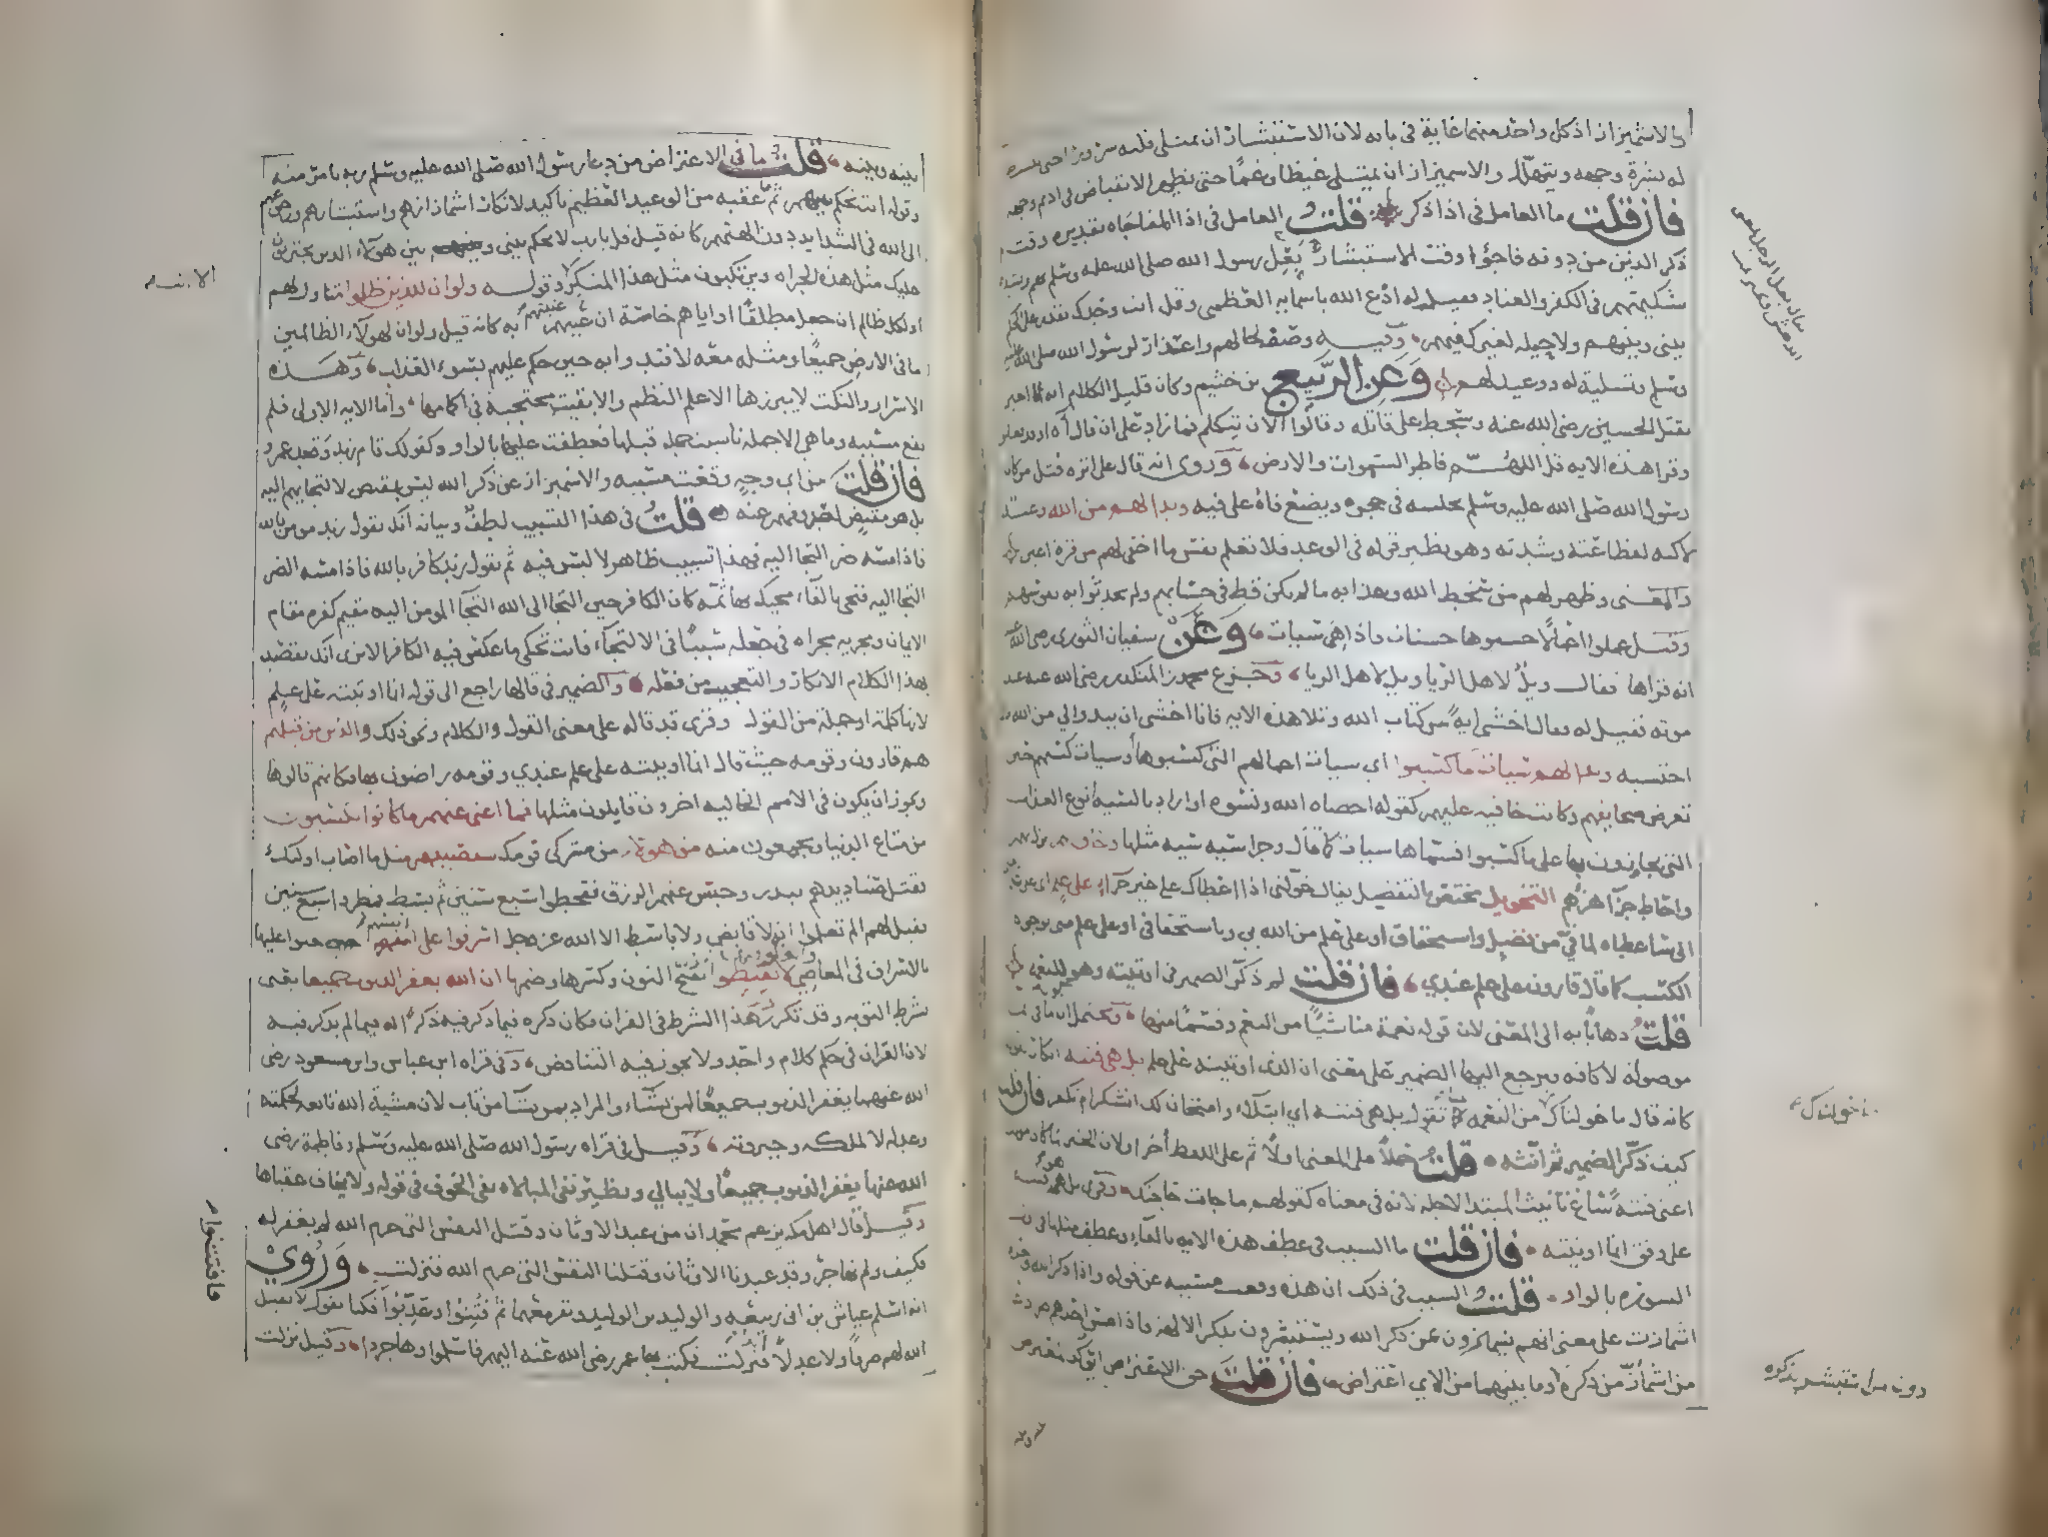 والاشمئزاز اذ كل واحد منهما غاية في بابه لان الاستبشار ان يمتلى قلبه سرورا حتى
له بشرة وجهه ويتهلل والاشمئزاز ان يمتلى غيظا وغما حتى يظهر الانقباض في اديم وجهه
فان قلت ما العامل في اذا ذكر قلت العامل في اذا المفاجاه تقديره وقت
ذكر الذين من دونه فاجؤا وقت الاستبشار بعل رسول الله صلى الله عليه وسلم بهم وبشدة
شكيمتهم في الكفر والعناد فقيل له ادع الله باسمايه العظمى وقل انت وحدك تقدر على الحكم
بيني وبينهم ولا حيلة لغيرك فيهم وفيه وصف لحالهم واعتذار لرسول الله صلى الله عليه
وسلم وتسلية له ووعيد لهم وعن الربيع بن خثيم وكان قليل الكلام انه اخبر
بقتل الحسين رضي الله عنه وسخط على قاتله وقالوا الان يتكلم فما زاد على ان قال آه اوقد فعلوا
وقرا هذه الايه قل اللهم فاطر السموات والارض وروى انه قال على اثره قتل من كان
رسول الله صلى الله عليه وسلم يجلسه في حجره ويضع فاه على فيه وبدا لهم من الله وعيد
لا كنه لفظاعته وشدته وهو نظير قوله في الوعد فلا تعلم نفس ما اخفي لهم من قرة اعين
والمعنى وظهر لهم من سخط الله وعذابه ما لم يكن قط في حسابهم ولم يحدثوا به نفوسهم
وقيل عملوا اعمالا حسبوها حسنات فاذا هي سيات وعن سفيان الثوري رضي الله عنه
انه قراها فقال ويل لاهل الريا ويل لاهل الريا وجزع محمد بن المنكدر رضي الله عنه عند
موته فقيل له فقال اخشى اية من كتاب الله وتلا هذه الايه فانا اخشى ان يبدو لي من الله ما لم
احتسبه وبدا لهم سيات ما كسبوا اي سيات اعمالهم التي كسبوها او سيات كسبهم حين
تعرض صحايفهم وكانت خافيه عليهم كقوله احصاه الله ونسوه او اراد بالسيات انواع العذاب
التي يجازون بها على ما كسبوا فسماها سيات كما قال وجزا سيه سيه مثلها وحاق بهم ونزل بهم
واحاط جزآ هزئهم التخويل مختص بالتفضيل يقال خولني اذا اعطاك على غير جزآ على علم اي على
اني ساعطاه لما في من فضل واستحقاق او على علم من الله بي وباستحقاقي او على علم مني بوجوه
الكسب كما قال قارون على علم عندي فان قلت لم ذكر الضمير في اوتيته وهو للنعمه
قلت ذهابا به الى المعنى لان قوله نعمة منا شيا من النعم وقسما منها ويحتمل ان ما في انما
موصولة لا كافه فيرجع اليها الضمير على معنى ان الذي اوتيته على علم بل هي فتنه انكار
كانه قال ما خولناك من النعمه لما تقول بل هي فتنة اي ابتلاء وامتحان لك اتشكر ام تكفر فان قلت
كيف ذكر الضمير ثم انثه قلت حملا على المعنى اولا ثم على اللفظ اخرا ولان الخبر لما كان مونثا
اعني فتنة ساغ تانيث المبتدا لاجله لانه في معناه كقولهم ما جات حاجتك وقرى بل هو فتنه
على وفق انما اوتيته فان قلت ما السبب في عطف هذه الايه بالفاء وعطف مثلها في اول
السورة بالواو قلت السبب في ذلك ان هذه وقعت مسببه عن قوله واذا ذكر الله وحده
اشمازت على معنى انهم يشمئزون عن ذكر الله ويستبشرون بذكر الالهه فاذا مس احدهم ضر دعا
من اشماز من ذكره دون من استبشر بذكره وما بينهما من الاي اعتراض فان قلت حق الاعتراض ان يؤكد المعترض
بينه وبينه قلت ما في الاعتراض من دعا رسول الله صلى الله عليه وسلم ربه بامر منه
وقوله انت تحكم بينهم ثم ما عقبه من الوعيد العظيم تاكيد لانكار اشمئزازهم واستبشارهم ورجوعهم
الى الله في الشدايد دون الهتهم كانه قيل قل يا رب لا يحكم بيني وبين هولاء الذين يجترئون
عليك مثل هذه الجراه ويرتكبون مثل هذا المنكر الا انت وقوله ولو ان للذين ظلموا متناول لهم
او لكل ظالم ان جعل مطلقا او اياهم خاصة ان عنيتهم به كانه قيل ولو ان لهولاء الظالمين
ما في الارض جميعا ومثله معه لافتدوا به حين حكم عليهم بسوء العذاب وهذه
الاسرار والنكت لا يبرزها الا علم النظم والا بقيت محتجبة في اكمامها واما الايه الاولى فلم
تقع مسببه وما هي الا جملة ناسبت جملة قبلها فعطفت عليها بالواو وكقولك قام زيد وقعد عمرو
فان قلت من اي وجه وقعت مسببه والاشمئزاز عن ذكر الله ليس بمقتض لالتجايهم اليه
بل هو مقتض لصدوفهم عنه قلت في هذا التسبيب لطف وبيانه انك تقول زيد مومن بالله
فاذا مسه ضر التجا اليه فهذا تسبيب ظاهر لا لبس فيه ثم تقول زيد كافر بالله فاذا مسه الضر
التجا اليه فتجي بالفاء مجيك بها ثمة كان الكافر حين التجا الى الله التجا المومن اليه مقيم كفره مقام
الايمان ومجريه مجراه في جعله سببا في الالتجآء فانت تحكي ما عكس فيه الكافر الا ترى انك تقصد
بهذا الكلام الانكار والتعجيب من فعله والضمير في قالها راجع الى قوله انما اوتيته على علم
لانها كلمة او جملة من القول وقرى قد قاله على معنى القول والكلام ونحو ذلك والذين من قبلهم
هم قارون وقومه حيث قال انما اوتيته على علم عندي وقومه راضون بها فكانهم قالوها
ويجوز ان يكون في الامم الخاليه اخرون قايلون مثلها فما اغنى عنهم ما كانوا يكسبون
من متاع الدنيا ويجمعون منه من هولاء من مشركي قومك سيصيبهم مثل ما اصاب اولئك
فقتل صناديدهم ببدر وحبس عنهم الرزق فقحطوا سبع سنين ثم بسط لهم فمطروا سبع سنين
فقيل لهم الم تعلموا انه لا قابض ولا باسط الا الله عز وجل اسرفوا على انفسهم جنوا عليها
بالاسراف في المعاصي لا تقنطوا بفتح النون وكسرها وضمها ان الله يغفر الذنوب جميعا يعني
بشرط التوبه وقد تكرر ذكر هذا الشرط في القران فكان ذكره فيما ذكر فيه ذكرا له فيما لم يذكر فيه
لان القران في حكم كلام واحد ولا يجوز فيه التناقض وفي قراه ابن عباس وابن مسعود رضي
الله عنهما يغفر الذنوب جميعا لمن يشاء والمراد بمن يشآ من تاب لان مشية الله تابعه لحكمته
وعدله لا لملكه وجبروته وقيل في قراه رسول الله صلى الله عليه وسلم وفاطمة رضي
الله عنها يغفر الذنوب جميعا ولا يبالي ونظير نفي المبالاه نفي الخوف في قوله ولا يخاف عقباها
وقيل قال اهل مكه يزعم محمد ان من عبد الاوثان وقتل النفس التي حرم الله لم يغفر له
فكيف ولم نهاجر وقد عبدنا الاوثان وقتلنا النفس التي حرم الله فنزلت وروي
انه اسلم عياش بن ابي ربيعه والوليد بن الوليد ونفر معهما ثم فتنوا وعذبوا فكنا نقول لا يقبل
الله لهم صرفا ولا عدلا فنزلت فكتب بها عمر رضي الله عنه اليهم فاسلموا وهاجروا وقيل نزلت
ما خولناك
دون من استبشر بذكره
الا انت
فافتتنوا